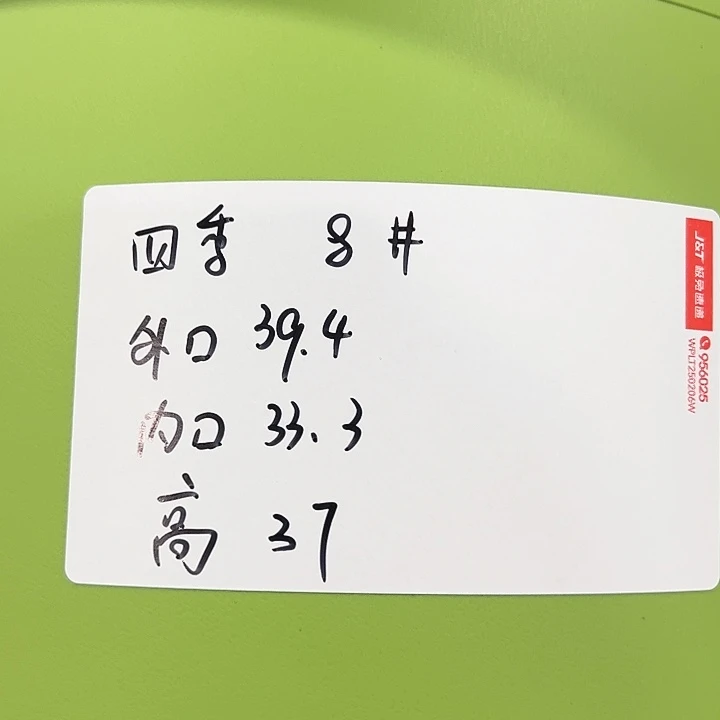 四季 8 #
外口 39.4
内口 33.3
高 37
J&T 极兔速递
956025
WPLT250206W